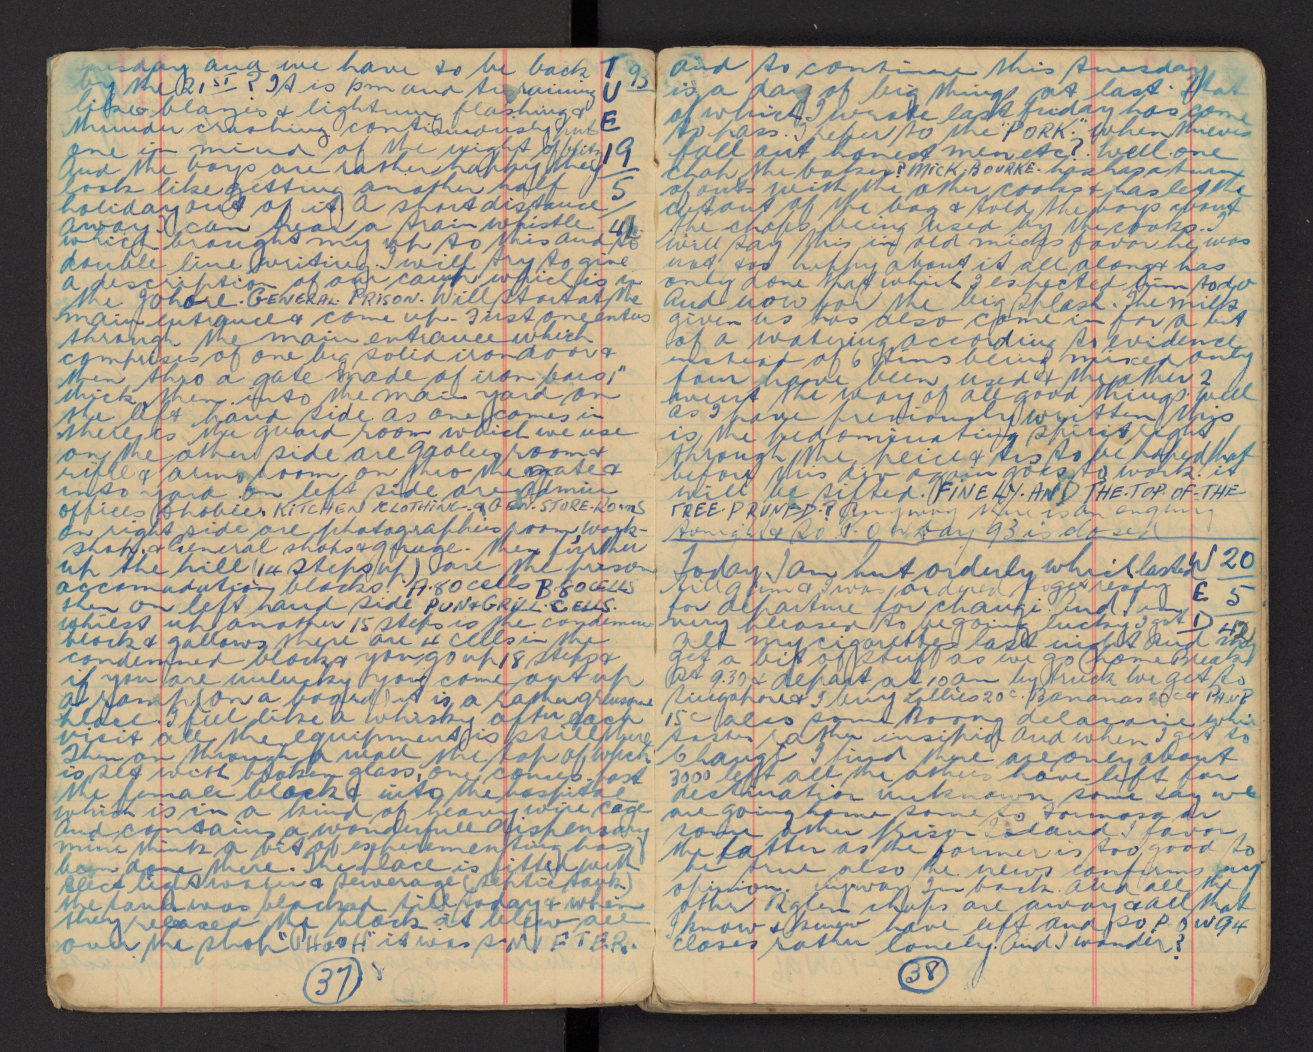 Tuesday and we have to be back
by the 21st? It is 1pm and its raining
like blazes & lightning flashing &
thunder crashing continuously puts
one in mind of the night of blitz
and the boys are rather happy they
look like getting another half
holiday out of it. A short distance
away I can hear a train whistle
which brought my up to this and to
double line writing. I will try to give
a description of our camp which is in
the Johore. GENERAL PRISON. Will start at the
main entrance & come up. First one enters
through the main entrance which
comprises of one big solid iron door &
then thro a gate made of iron bars 1"
thick, then into the main yard on
the left hand side as one comes in
there is the guard room which we use
on the other side are gaolers room &
rifle & arms room on thro the gate &
into yard on left side are admin
offices KITCHEN CLOTHING. & GEN. STORE-ROOMS
on right side are photographers room, work-
shops, & General shops & garage. Then further
up the hill (14 steps up) are the prison
accomodation blocks. A. 80 cells B 80 CELLS
then on left hand side PUN & GRILL CELLS.
whilst up another 15 steps is the condemned
block & gallows there are 4 cells in the
condemned block & you go up 18 steps &
if you are unlucky you come out up
a ramp (on a board) it is a rather gruesome
place. I feel like a whisky after each
visit all the equipment is still there
Then on through a wall the top of which
is set with broken glass, one comes past
the female block & into the hospital
which is in a kind of heavy wire cage
and contains a wonderfull dispensary
mini think a bit of experementing has
been done there. The place is fitted with
elect light water & sewerage (septic tank)
the tank was blocked till today & when
they released the block it blew all
over the shop "PHOOH" it was SNIFTER.
37
TUE 93
19
5
41
and to continue this tuesday
is a day of big things at last. That
of which I wrote last friday has come
to pass. I refer to the "PORK." when thieves
fall out honest men etc? Well one
chap the batcher? MICK, BOURKE. has has a turn
of outs with the other cooks & has let the
cat out of the bag & told the boys about
the chops being used by the cooks. I
will say this in old micks favor he was
not too happy about it all along & has
only done that which I expected him to do
And now for the big splash. The milk
given us has also come in for a bit
of a watering according to evidence
instead of 6 tins being mixed only
four have been used & the other 2
went the way of all good things well
as I have previously written this
is the predominating spirit right
through the peice & tis to be hoped that
before this div again goes to work it
will be sifted. FINELY. AND THE-TOP-OF-THE
TREE PRUNED.? Anyway there is an enquiry
tonight & so P.O.W day 93 is closed
Today I am hut orderly which lasted
till 9 am & I was ordered to get ready
for departure for changi and I am
very pleased to be going lucky I got
my cigarettes last night and may
get a bit of stuff as we go home break
at 9.30 & depart at 10 am by truck we get to
Singapore & I buy Lollies 20c. Bananas 20c & PAUP
15c also some Boong delacacie which
tastes rather insipid And when I get to
Changi I find there are only about
3000 left all the others have left for
destination unknown some say we
are going home some to Formosa or
some other Prison Island. I favor
the latter as the former is too good to
be true also the news confirms my
opinion. Anyway I'm back and all the
other Rglen chaps are away & all that
I know & knew have left and so P.O.W 94
closes rather lonely. And I wonder?
WED
20
5
42
38